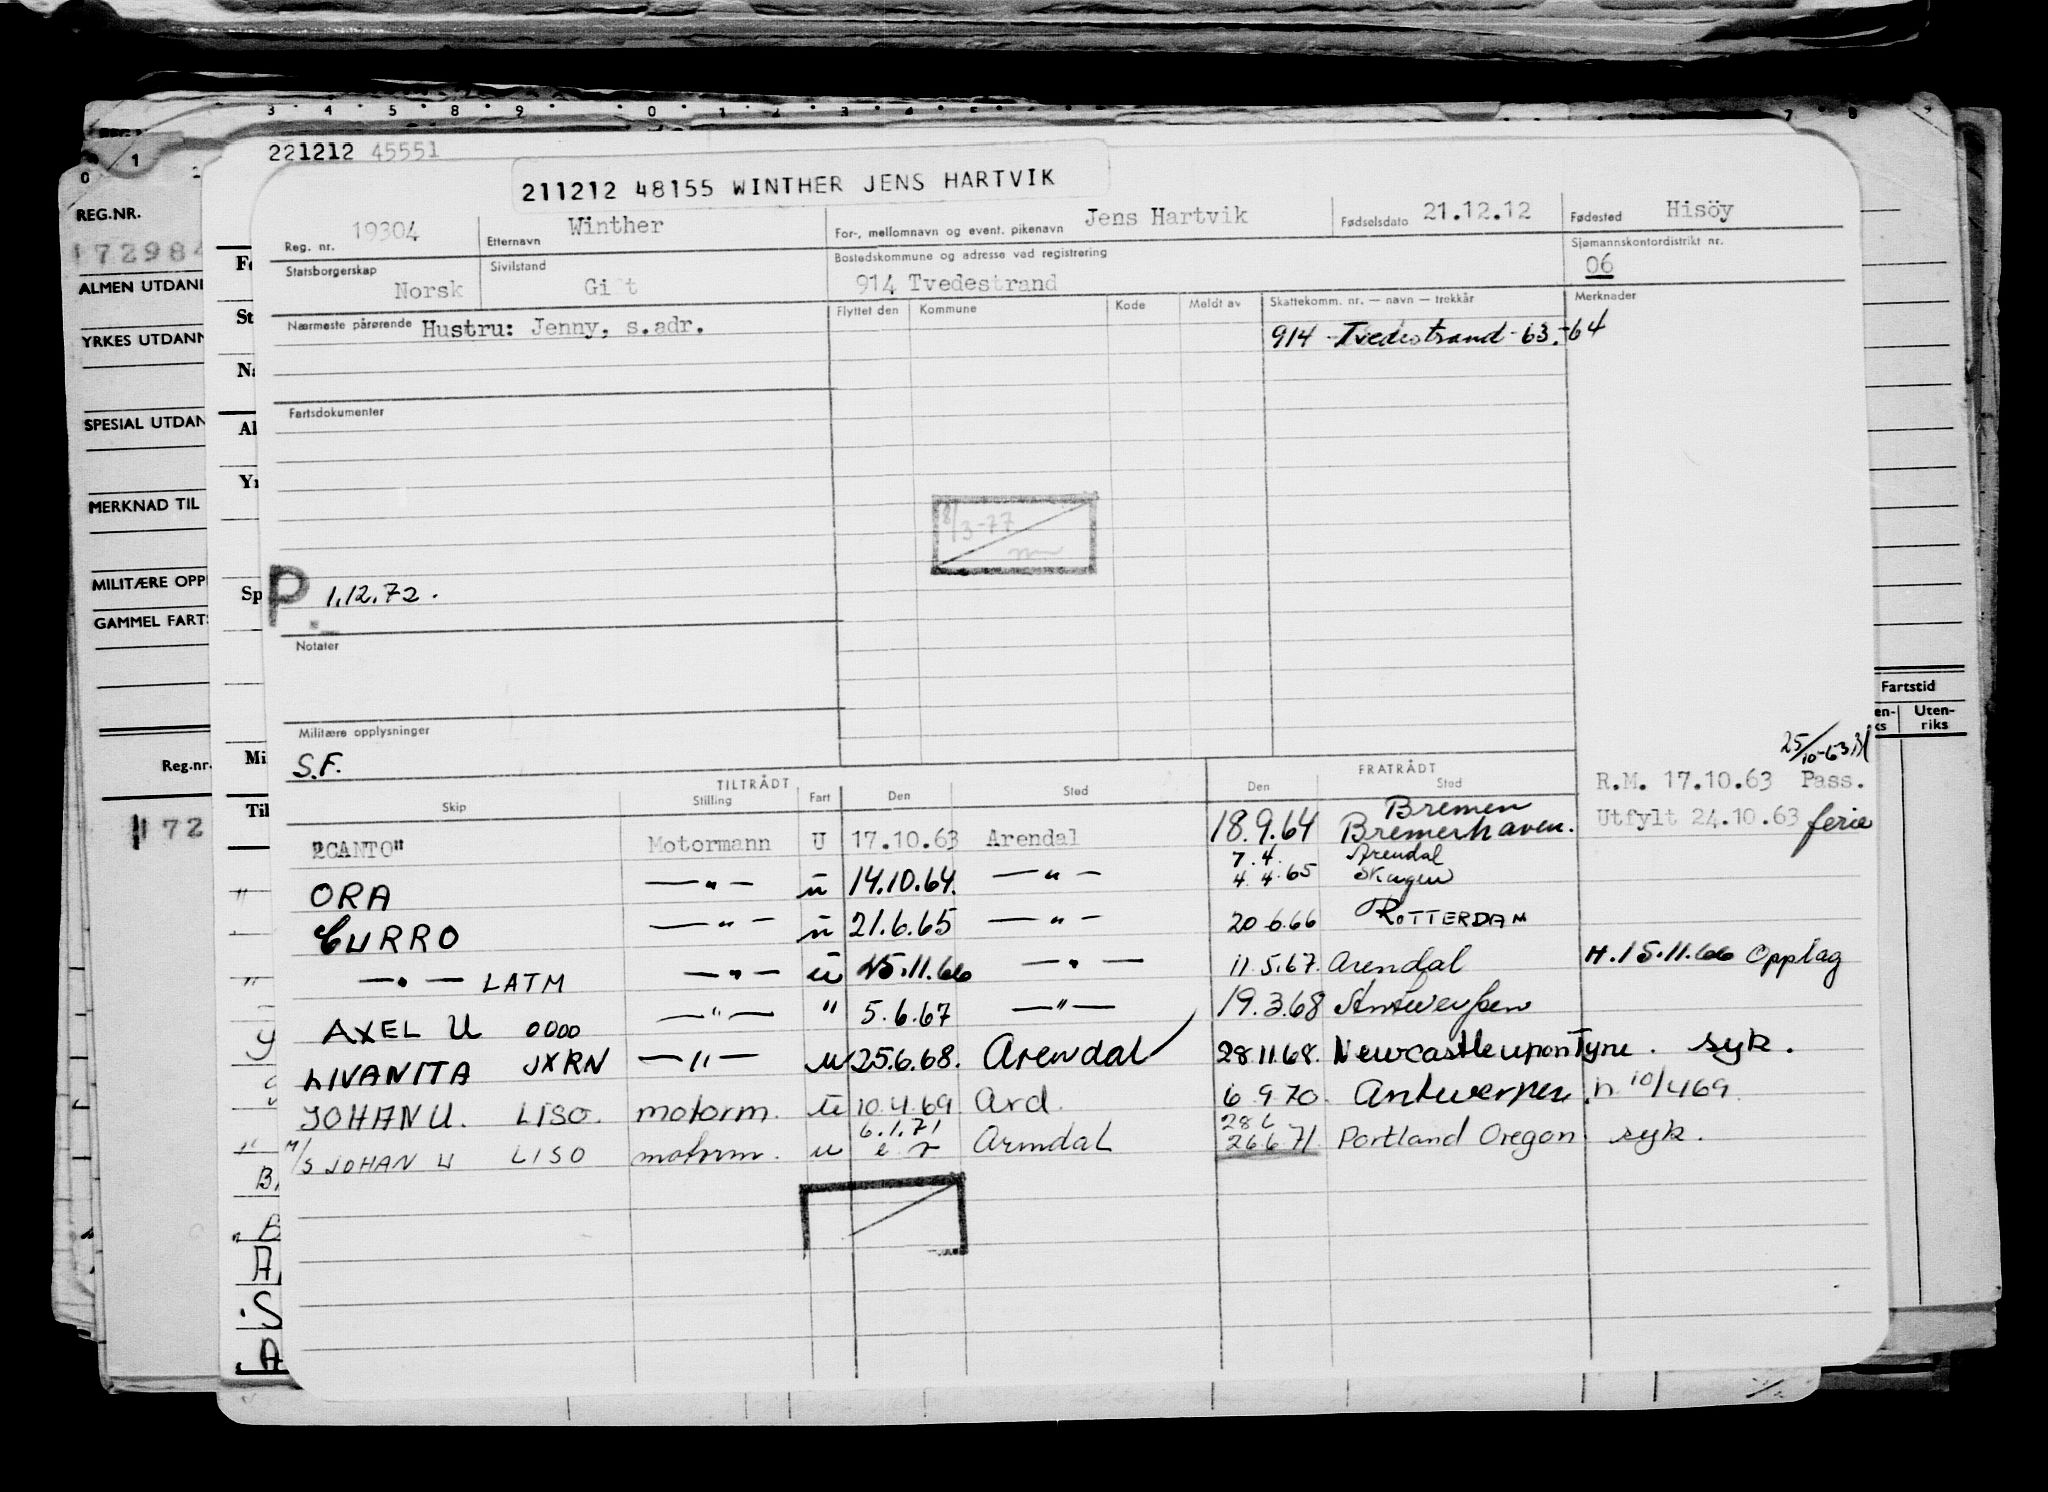 3 4 5 8 9 0 1 2 3 4 5 7 8
221212 45551
211212 48155 WINTHER JENS HARTVIK
Reg. nr. 19304 Etternavn Winther For-, mellomnavn og event. pikenavn Jens Hartvik Fødselsdato 21.12.12 Fødested Hisöy
Statsborgerskap Norsk Sivilstand Gift Bostedskommune og adresse ved registrering 914 Tvedestrand Sjømannskontordistrikt nr. 06
Nærmeste pårørende Hustru: Jenny, s.adr. Flyttet den Kommune Kode Meldt av Skattekomm. nr. — navn — trekkår Merknader
914 Tvedestrand 63-64
Fartsdokumenter
18/3-77
P 1.12.72.
Notater
Militære opplysninger
S.F.
25/10-63
R.M. 17.10.63 Pass.
Utfylt 24.10.63 ferie
TILTRÅDT FRATRÅDT
Skip Stilling Fart Den Sted Den Sted
Bremen
"CANTO" Motormann U 17.10.63 Arendal 18.9.64 Bremerhaven.
7.4. Arendal
ORA —"— u 14.10.64. —"— 4.4.65 Skagen
CURRO —"— u 21.6.65 —"— 20.6.66 ROTTERDAM
—"— LATM —"— u 15.11.66 —"— 11.5.67. Arendal H.15.11.66 Opplag
AXEL U OOOO —"— " 5.6.67 —"— 19.3.68 Antwerpen
LIVANITA JXRN —"— u 25.6.68. Arendal 28.11.68. Newcastle upon Tyne. syk.
JOHAN U. LISO. motorm. u 10.4.69 Ard. 6.9.70. Antwerpen. n. 10/4 69.
6.1.71 28 6
M/S JOHAN U LISO motorm. u Arendal 26 6 71 Portland Oregon syk.
REG.NR.
172984
ALMEN UTDAN
YRKES UTDANN
SPESIAL UTDAN
MERKNAD TIL
MILITÆRE OPPL
GAMMEL FARTS
Reg.nr.
172
St
Na
Al
Yr
Sp
Mi
Til
Fartstid
Uten-
riks